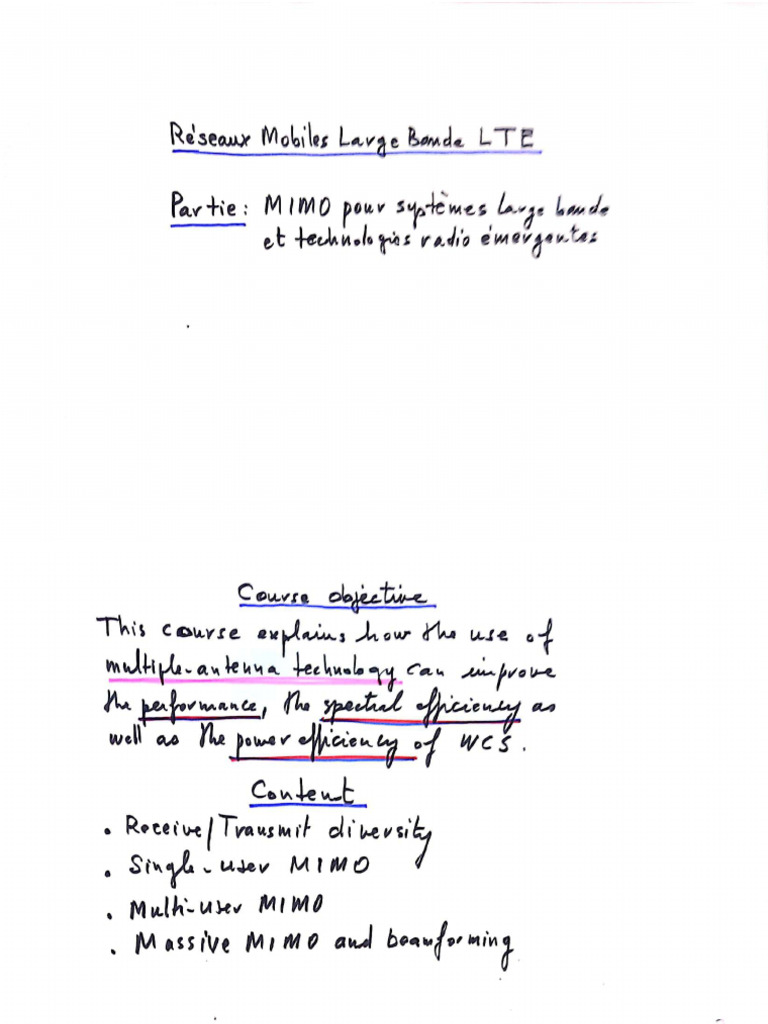 Réseaux Mobiles Large Bande LTE
Partie: MIMO pour systèmes large bande
et technologies radio émergentes
Course objective
This course explains how the use of
multiple-antenna technology can improve
the performance, the spectral efficiency as
well as the power efficiency of WCS.
Content
• Receive/Transmit diversity
• Single-user MIMO
• Multi-user MIMO
• Massive MIMO and beamforming